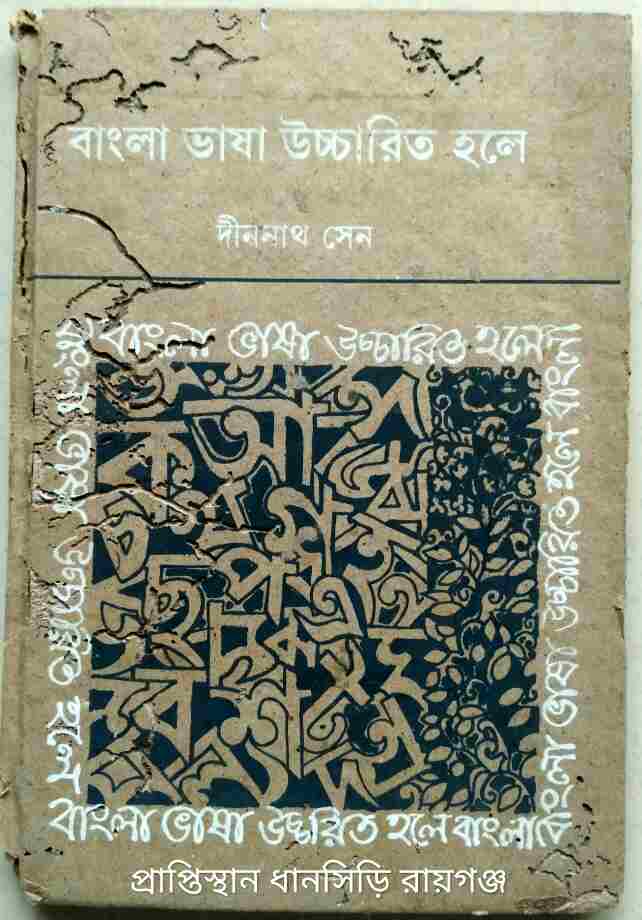 বাংলা ভাষা উচ্চারিত হলে
দীননাথ সেন
বাংলা ভাষা উচ্চারিত হলে
বাংলা ভাষা উচ্চারিত হলে
বাংলা ভাষা উচ্চারিত হলে বাংলা
বাংলা ভাষা উচ্চরিত হলে বাংলা
প্রাপ্তিস্থান ধানসিড়ি রায়গঞ্জ